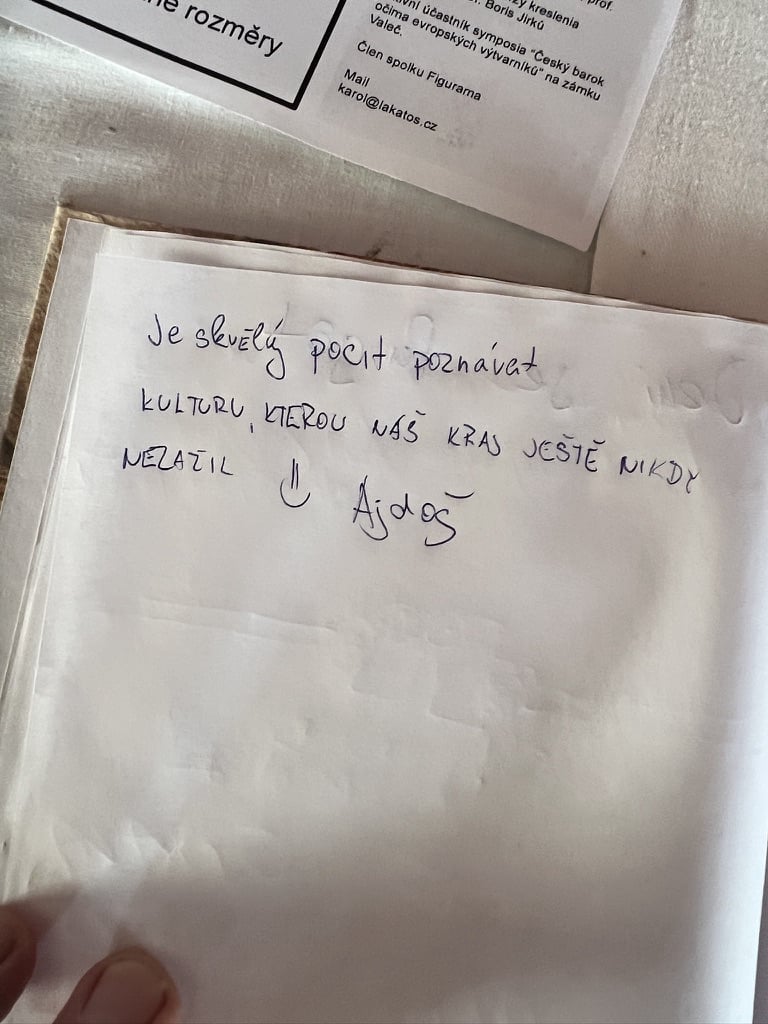 né rozměry
prof.
kreslenia
Boris Jirků
účastník symposia "Český barok
očima evropských výtvarníků" na zámku
Valeč.
Člen spolku Figurama
Mail
karol@lakatos.cz
Je skvělý pocit poznávat
KULTURU, KTEROU NÁŠ KRAJ JEŠTĚ NIKDY
NEZAŽIL
Ajdoš